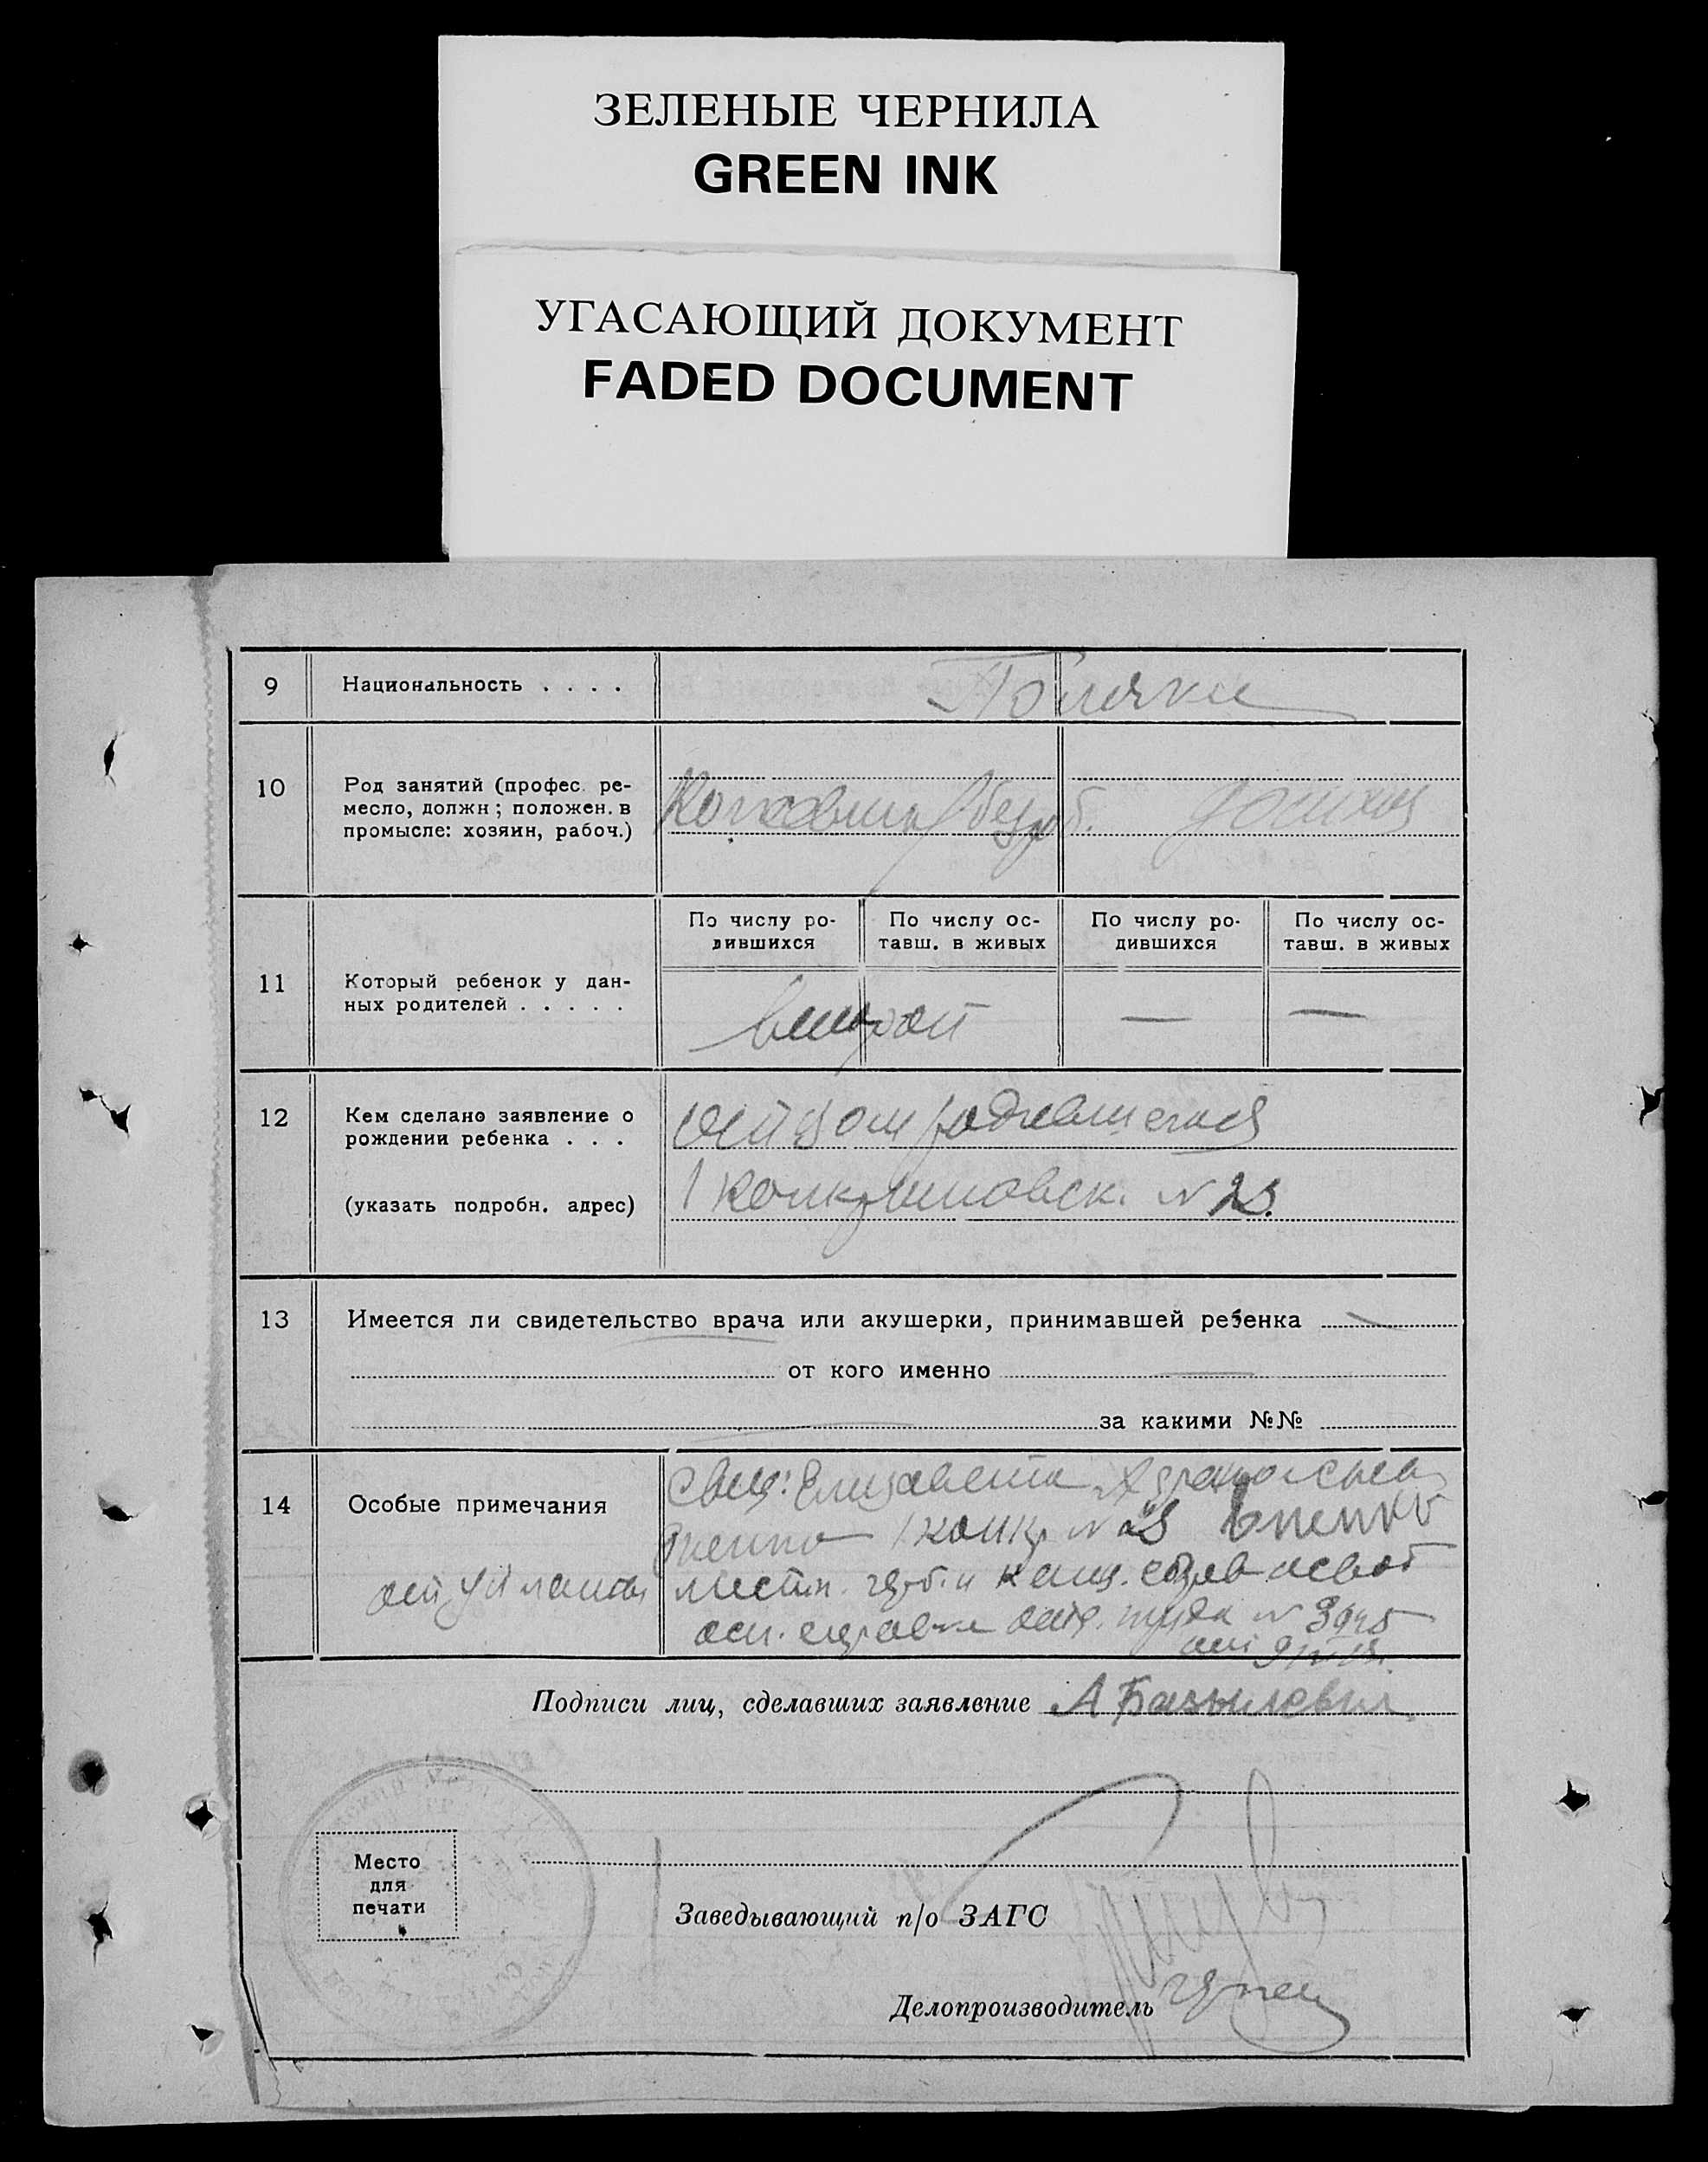 ЗЕЛЕНЫЕ ЧЕРНИЛА
GREEN INK
УГАСАЮЩИЙ ДОКУМЕНТ
FADED DOCUMENT
9 Национальность . . . . Поляки
10 Род занятий (профес. ре-
месло, должн; положен. в
промысле: хозяин, рабоч.)
безраб. домхоз
11 Который ребенок у дан-
ных родителей . . . . .
По числу ро-
дившихся
По числу ос-
тавш. в живых
По числу ро-
дившихся
По числу ос-
тавш. в живых
второй — —
12 Кем сделано заявление о
рождении ребенка . . .
отцом родившегося
(указать подробн. адрес)
№ 23.
13 Имеется ли свидетельство врача или акушерки, принимавшей ребенка —
от кого именно —
за какими №№
14 Особые примечания
Елизавета
№ 23
от уплаты
местн. герб. и канц. сбров освоб
осн. справки № 3945
от
Подписи лиц, сделавших заявление А Базылевич
Место
для
печати
Заведывающий п/о ЗАГС
Делопроизводитель